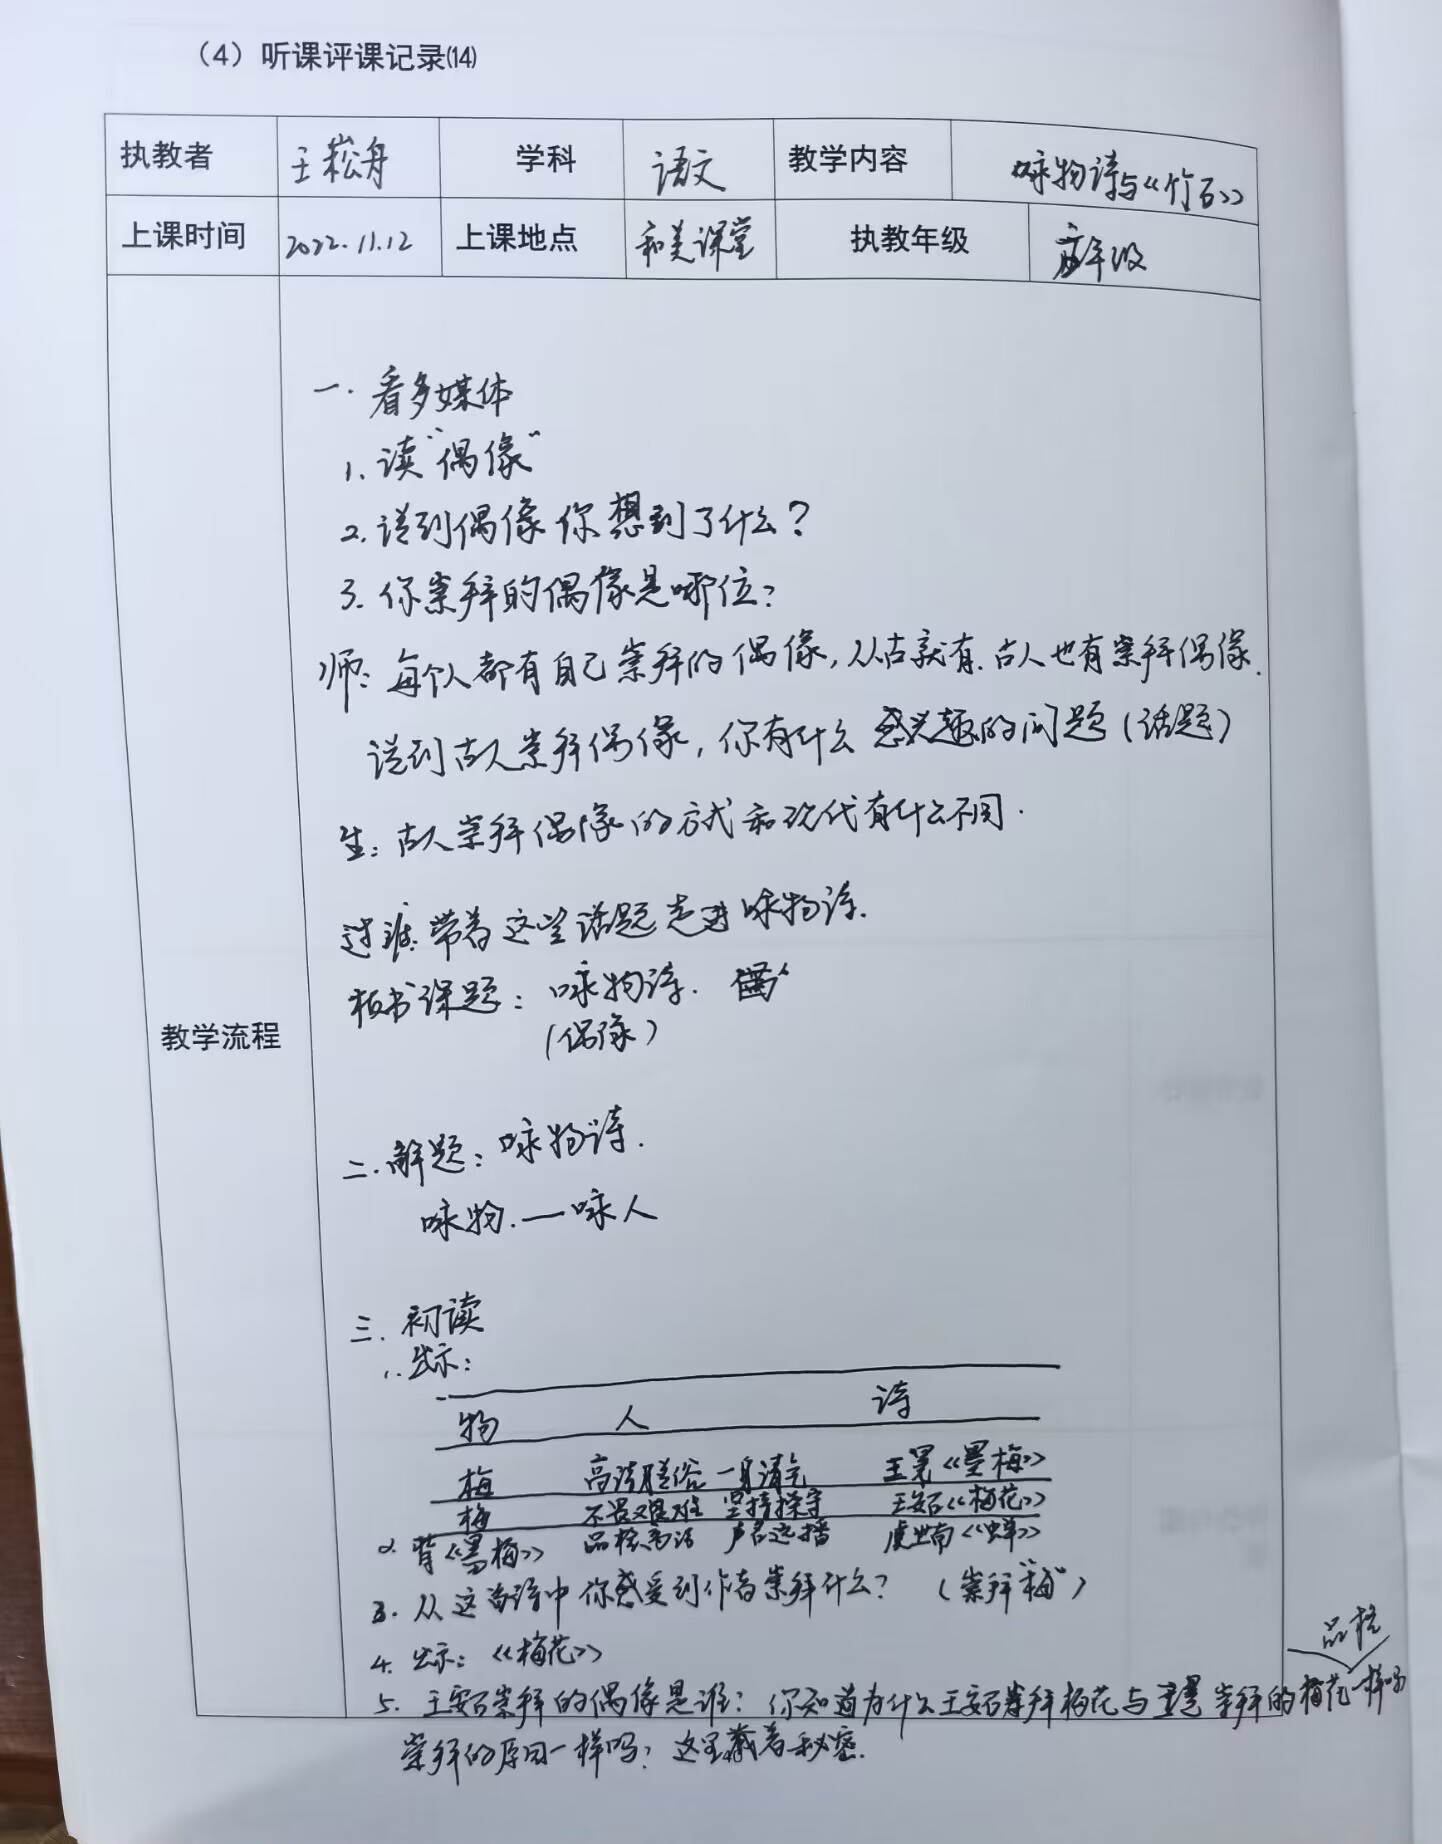 （4）听课评课记录⒁
执教者 王崧舟 学科 语文 教学内容 咏物诗与《竹石》
上课时间 2022.11.12 上课地点 和美课堂 执教年级 年级
教学流程
一. 看多媒体
1. 读“偶像”
2. 说到偶像你想到了什么？
3. 你崇拜的偶像是哪位？
师：每个人都有自己崇拜的偶像，从古就有. 古人也有崇拜偶像.
说到古人崇拜偶像，你有什么感兴趣的问题（话题）
生：古人崇拜偶像的方式和现代有什么不同.
过渡：带着这些话题走进咏物诗.
板书课题：咏物诗.
（偶像）
二. 解题：咏物诗.
咏物.—咏人
三. 初读
1. 出示：
物 人 诗
梅 高洁脱俗 一身清气 王冕《墨梅》
梅 不畏艰难 坚持操守 王安石《梅花》
品格高洁 声名远播 虞世南《蝉》
2. 背《墨梅》
3. 从这首诗中你感受到作者崇拜什么？（崇拜“梅”）
4. 出示：《梅花》
品格
5. 王安石崇拜的偶像是谁？你知道为什么王安石崇拜梅花与王冕崇拜的梅花一样吗
崇拜的原因一样吗？这里藏着秘密.